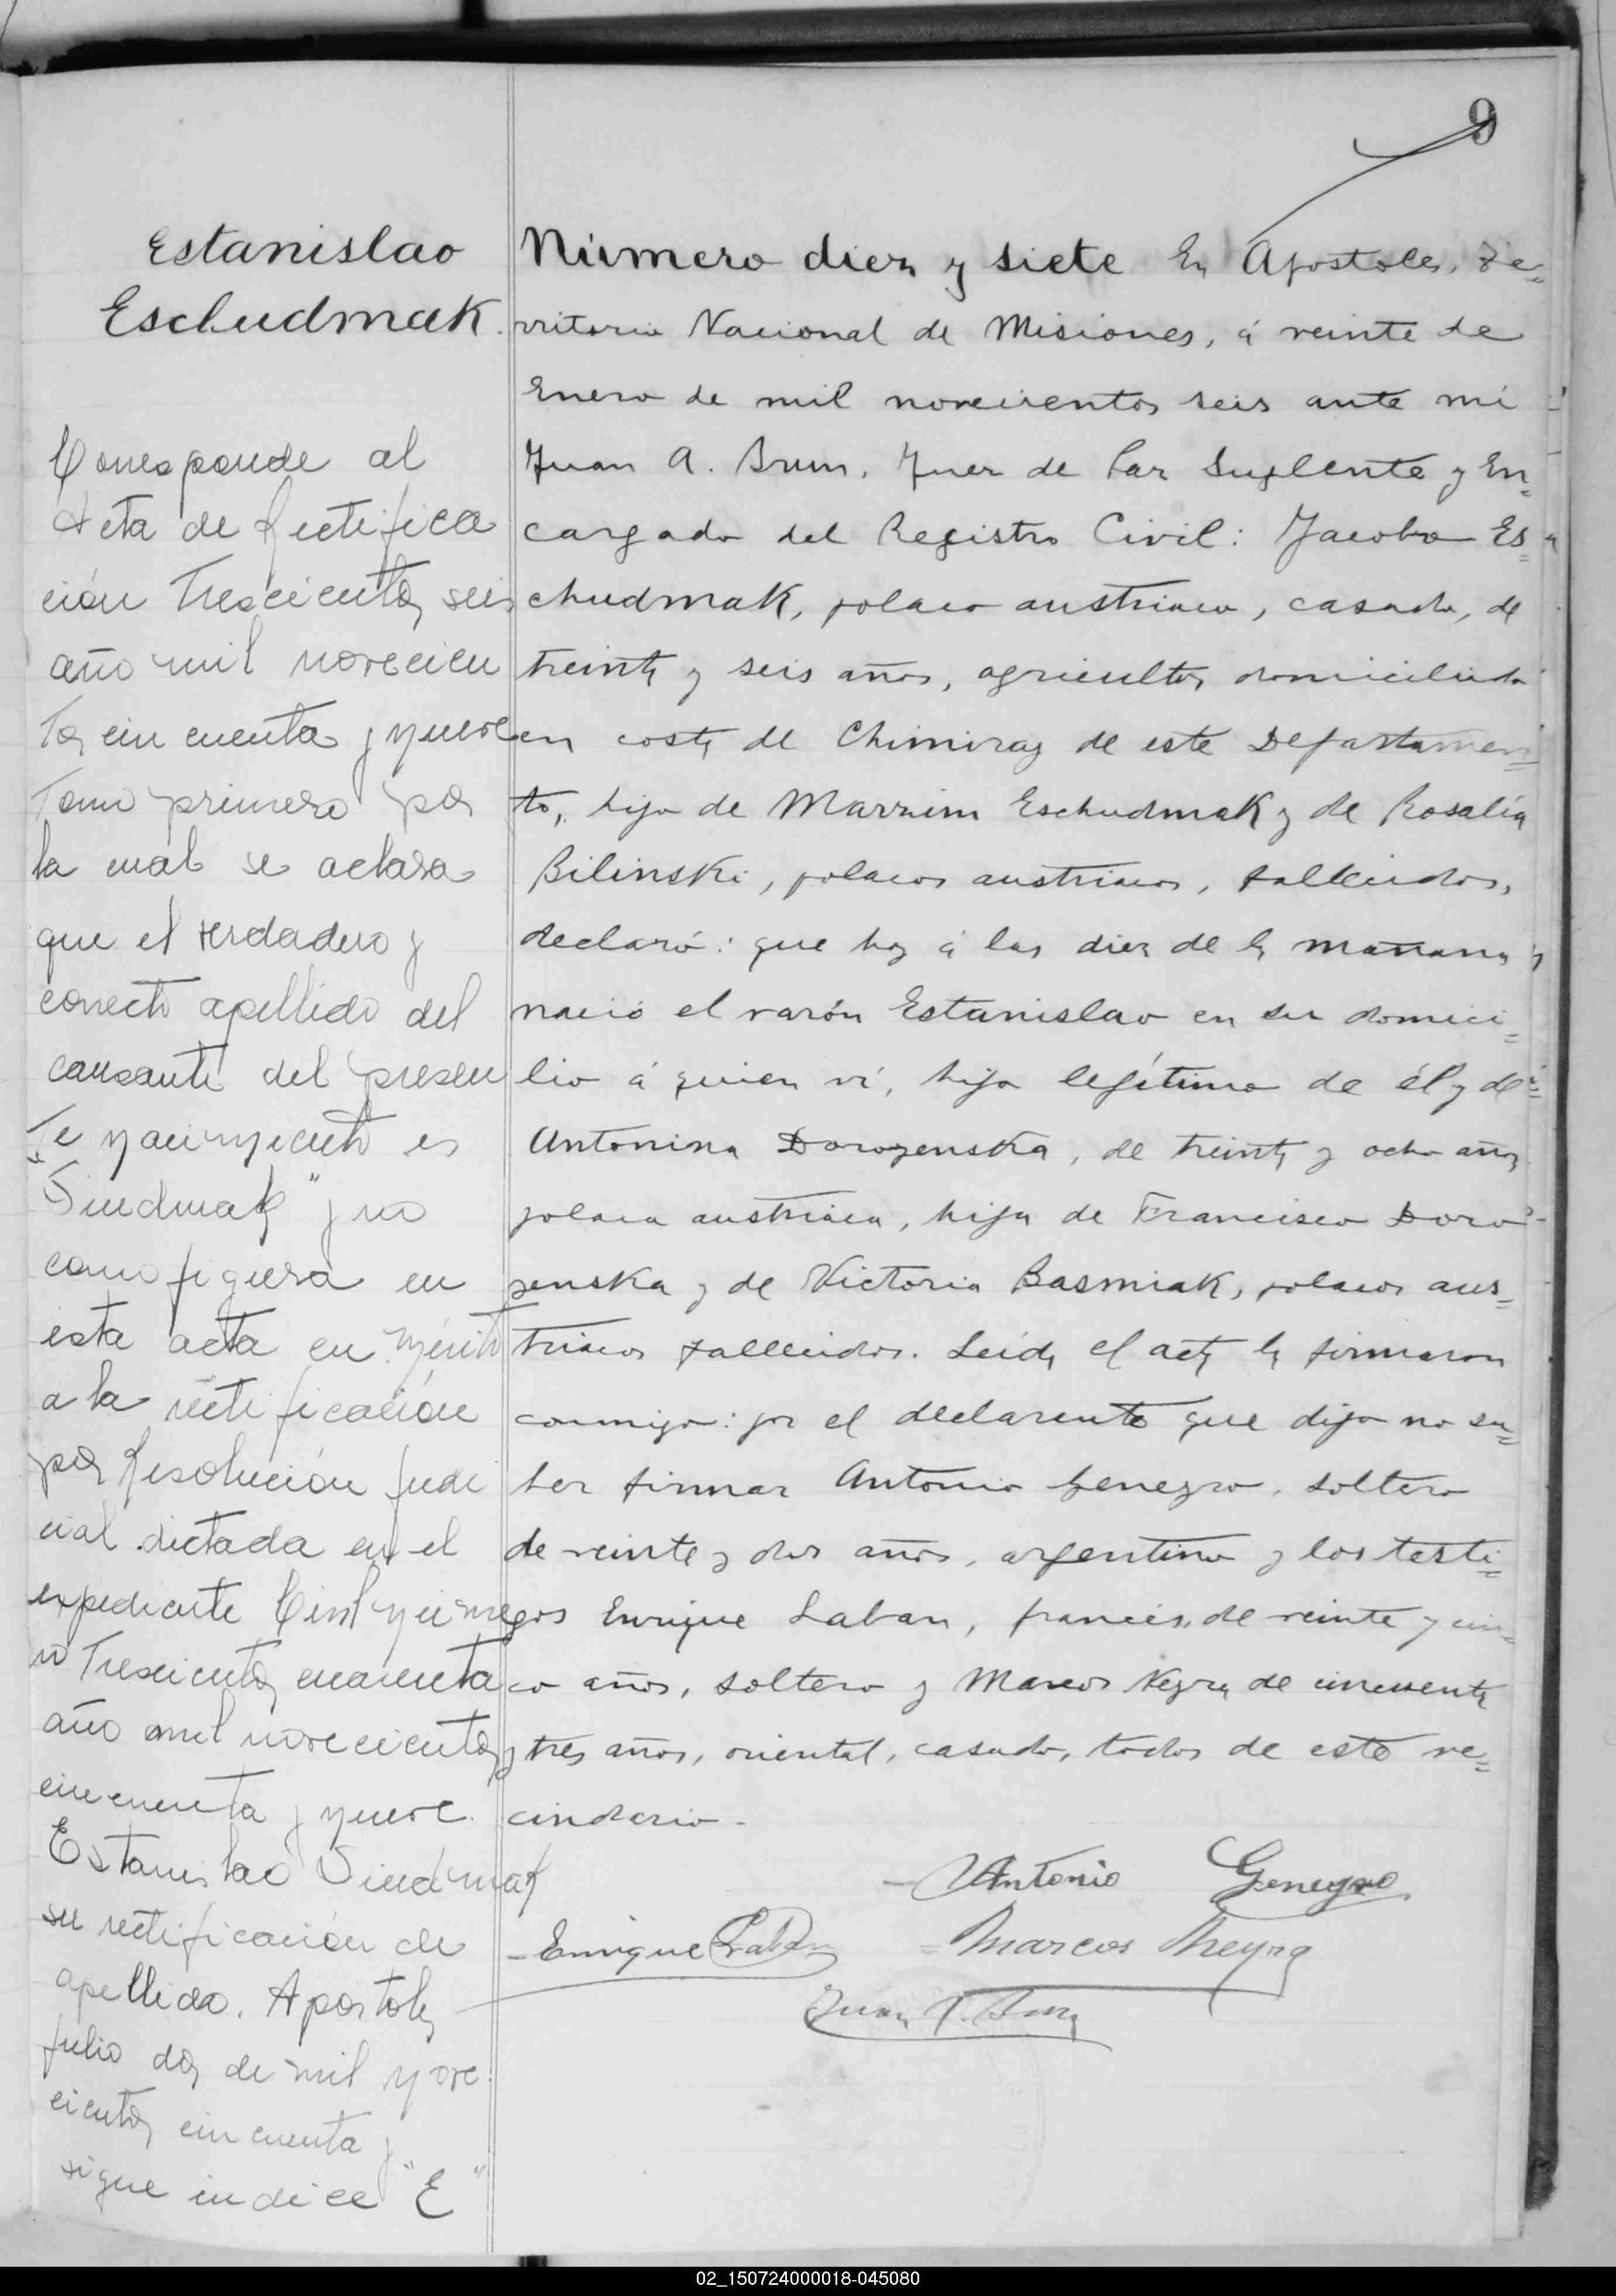 9
Estanislao
Eschudmak.
Corresponde al
Acta de Rectifica
ción Trescientos seis
año mil novecien
tos cincuenta y nueve
Tomo primero por
la cual se aclara
que el verdadero y
correcto apellido del
causante del presen
te nacimiento es
"Siudmak" y no
como figura en
esta acta en mérito
a la rectificación
por Resolución Judi
cial dictada en el
expediente Civil núme
ro Trescientos cuarenta
año mil novecientos
cincuenta y nueve.
Estanislao Siudmak
su rectificación de
apellido. Apostoles
Julio dos de mil nove
cientos cincuenta y
sigue indice "E"
Número diez y siete En Apostoles, Te=
rritorio Nacional de Misiones, á veinte de
Enero de mil novecientos seis ante mi
Juan A. Brun, Juez de Paz Suplente y En=
cargado del Registro Civil: Jacobo Es=
chudmak, polaco austriaco, casado, de
treinta y seis años, agricultor, domiciliado
en costa de Chimiray de este Departamen=
to, hijo de Marzim Eschudmak y de Rosalía
Bilinski, polacos austriacos, fallecidos,
declaró: que hoy á las diez de la mañana
nació el varón Estanislao en su domici=
lio á quien ví, hijo legítimo de él y de
Antonina Dorozenska, de treinta y ocho años
polaca austriaca, hija de Francisco Doro=
zenska y de Victoria Basmiak, polacos aus=
triacos fallecidos. Leída el acta la firmaron
conmigo: por el declarante que dijo no sa=
ber firmar Antonio Genegro, soltero
de veinte y dos años, argentino y los testi=
gos Enrique Laban, francés, de veinte y cin=
co años, soltero y Marcos Neyra de cincuenta
y tres años, oriental, casado, todos de este ve=
cindario.
Antonio Genegro
Enrique Laban Marcos Neyra
Juan A. Brun
02_150724000018-045080